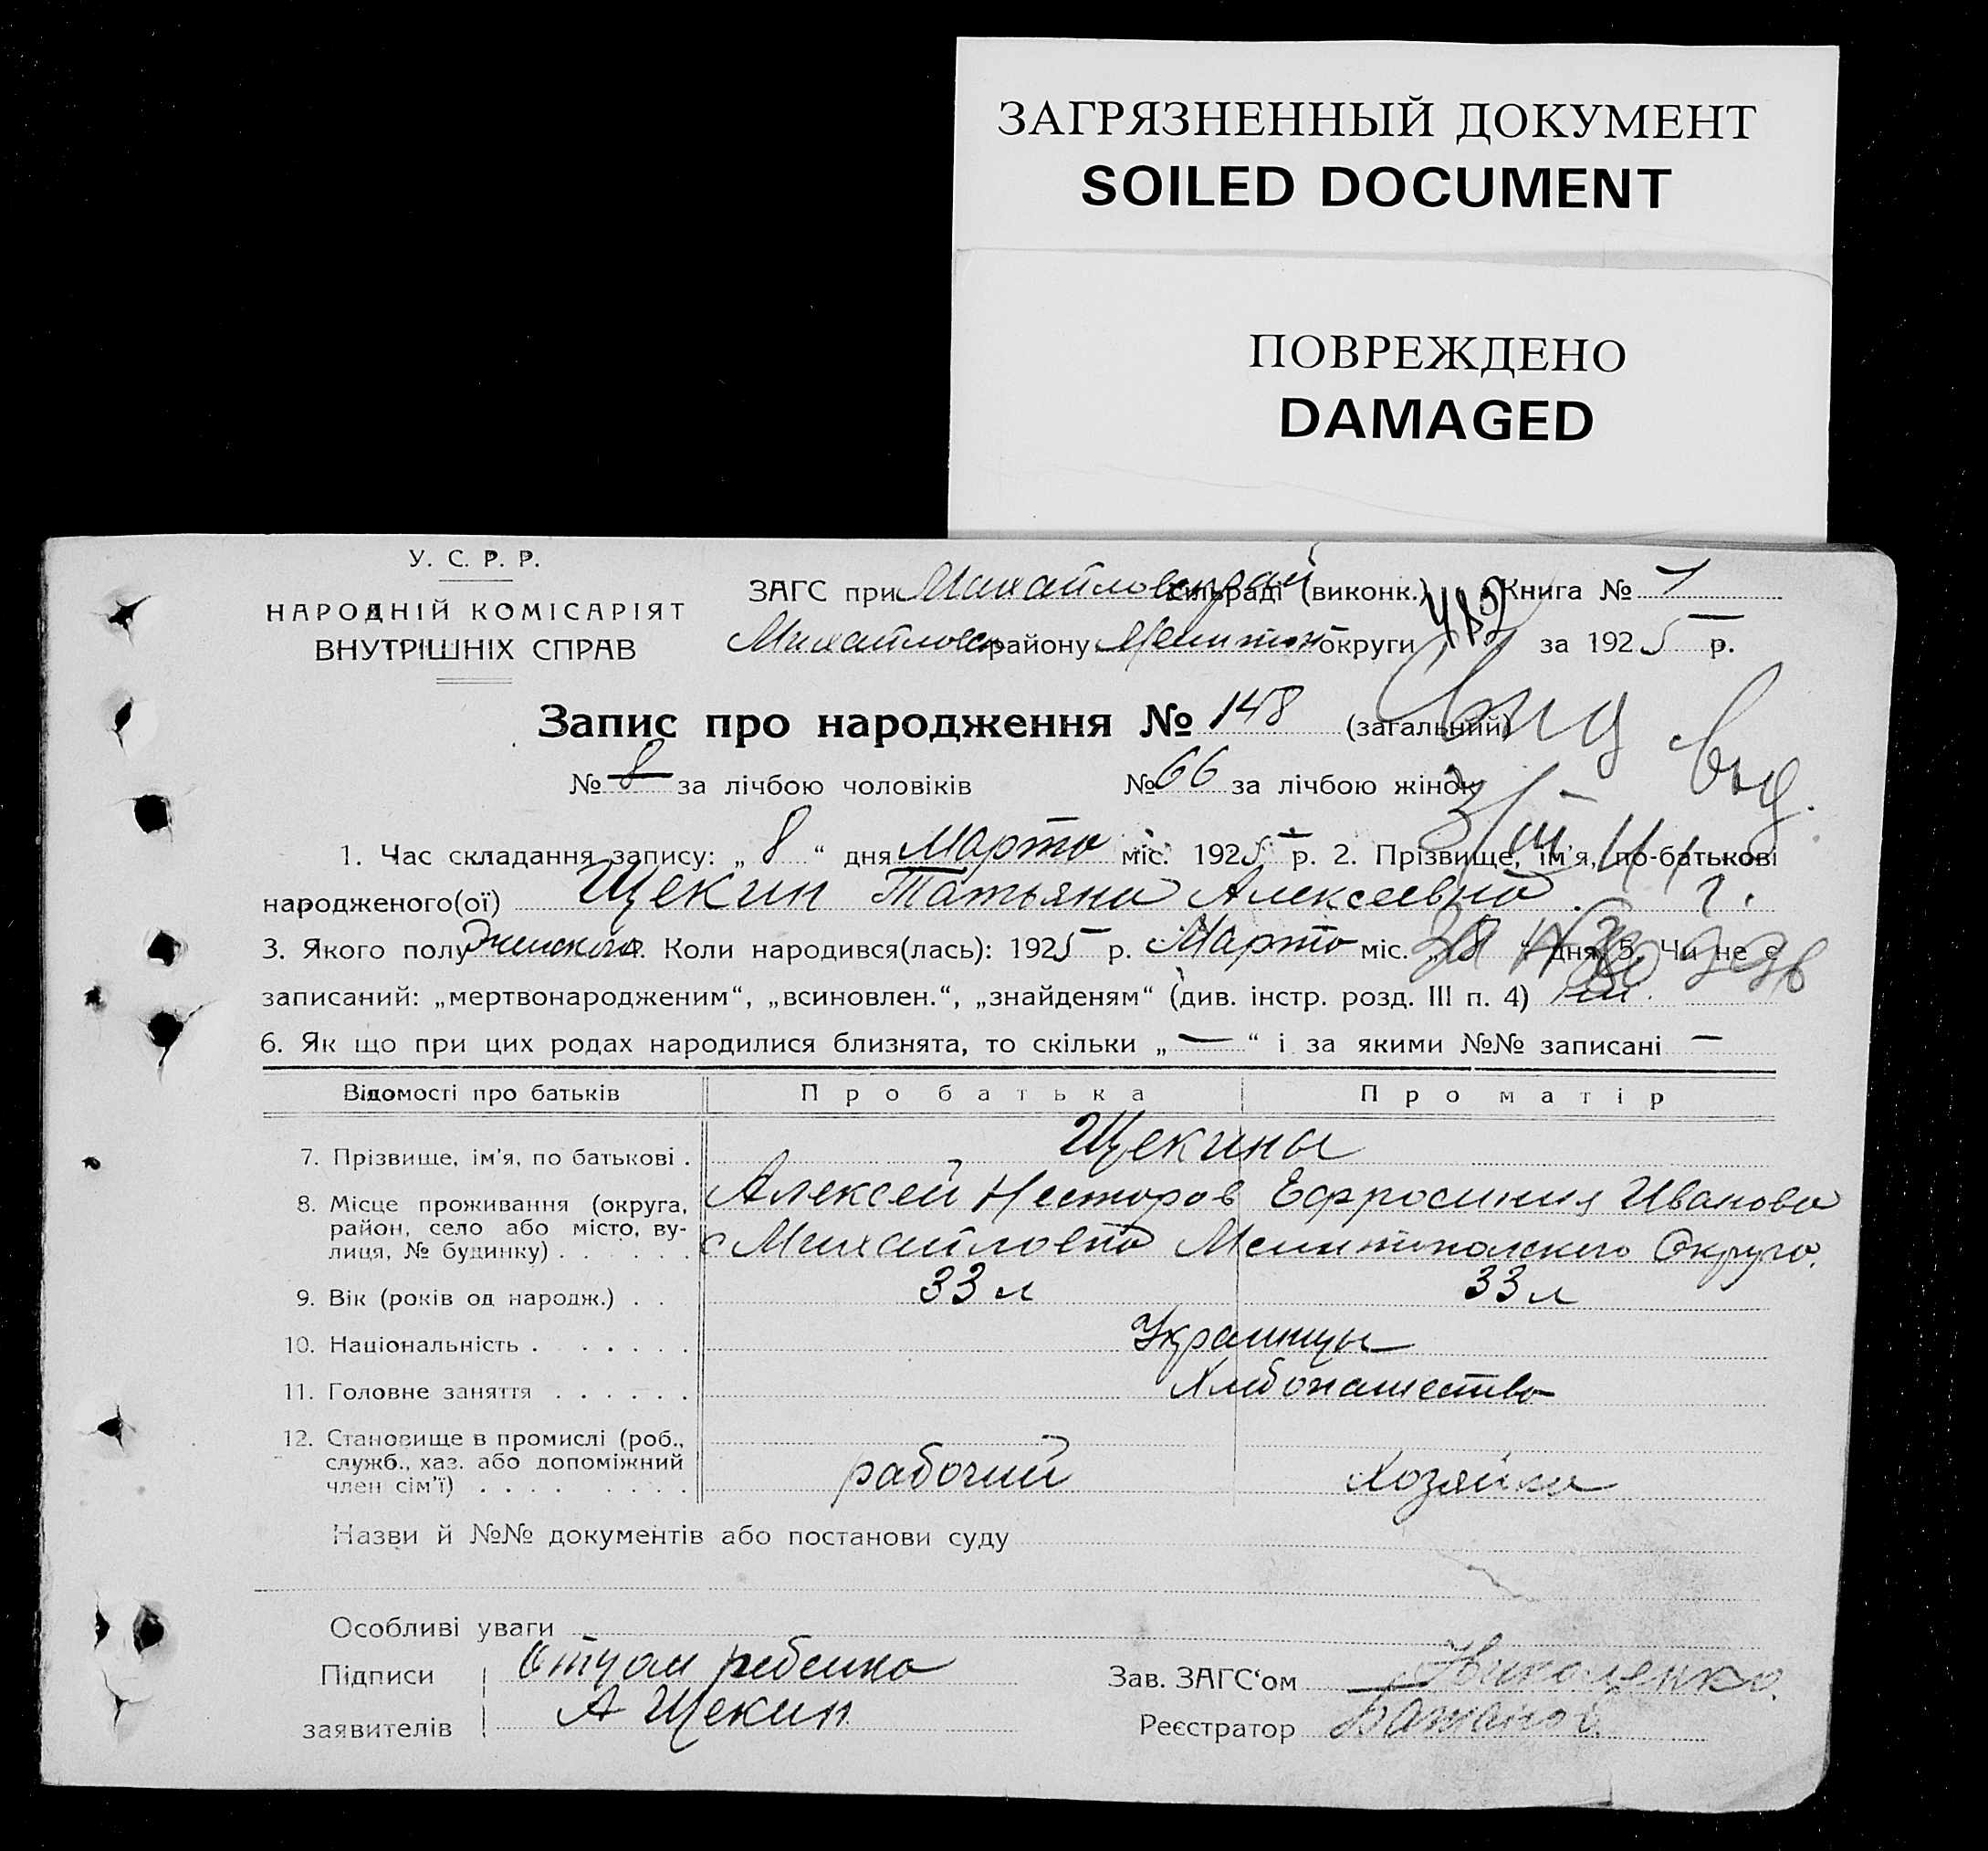 ЗАГРЯЗНЕННЫЙ ДОКУМЕНТ
SOILED DOCUMENT
ПОВРЕЖДЕНО
DAMAGED
У. С. Р. Р.
НАРОДНІЙ КОМІСАРІЯТ
ВНУТРІШНІХ СПРАВ
ЗАГС при Михайловск рай сільраді (виконк.) Книга № 1
Михайловск району Мелитоп округи за 1925 р.
Запис про народження № 148 (загальний)
№ 8 за лічбою чоловіків № 66 за лічбою жінок
1. Час складання запису: „ 8 “ дня Марта міс. 1925 р. 2. Прізвище, ім'я, по-батькові
народженого(ої) Щекин Татьяна Алексеевна
3. Якого полу женского. Коли народився(лась): 1925 р. Марта міс. „ 8 “ дня 5. Чи не є
записаний: „мертвонародженим“, „всиновлен.“, „знайденям“ (див. інстр. розд. III п. 4)
6. Як що при цих родах народилися близнята, то скільки „ — “ і за якими №№ записані —
Відомості про батьків Про батька Про матір
7. Прізвище, ім'я, по батькові . Щекины
8. Місце проживання (округа, район, село або місто, вулиця, № будинку) . . . . . .
Алексей Несторов Ефросиния Иванова
с Михайловка Мелитопольского Округа.
9. Вік (років од народж.) . . 33 л 33 л
10. Національність . . . . . . Украинцы
11. Головне заняття . . . . . . Хлебопашество
12. Становище в промислі (роб., служб., хаз. або допоміжний член сім'ї) . . . . . . . .
рабочий Хозяйка
Назви й №№ документів або постанови суду
Особливі уваги
Підписи Отцом ребенка Зав. ЗАГС‘ом Николенко.
заявителів А Щекин Реєстратор Бажанов